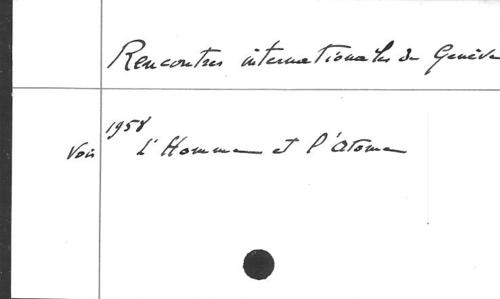 Rencontres internationales de Genève
1958
Voir L'Homme et l'Atome